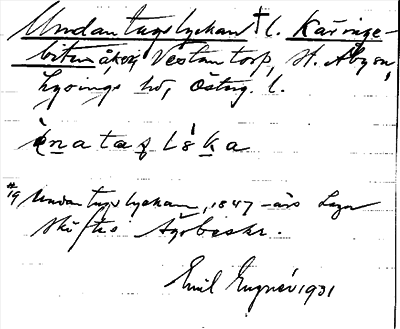 Undantagslyckan † l. Käringe-
biten åker, Västantorp, St. Åbyn,
Lysings hd, Östrg. l.
Undantagslyckan, 1847-års Laga
skiftes Ägobeskr.
Emil Engnér 1931